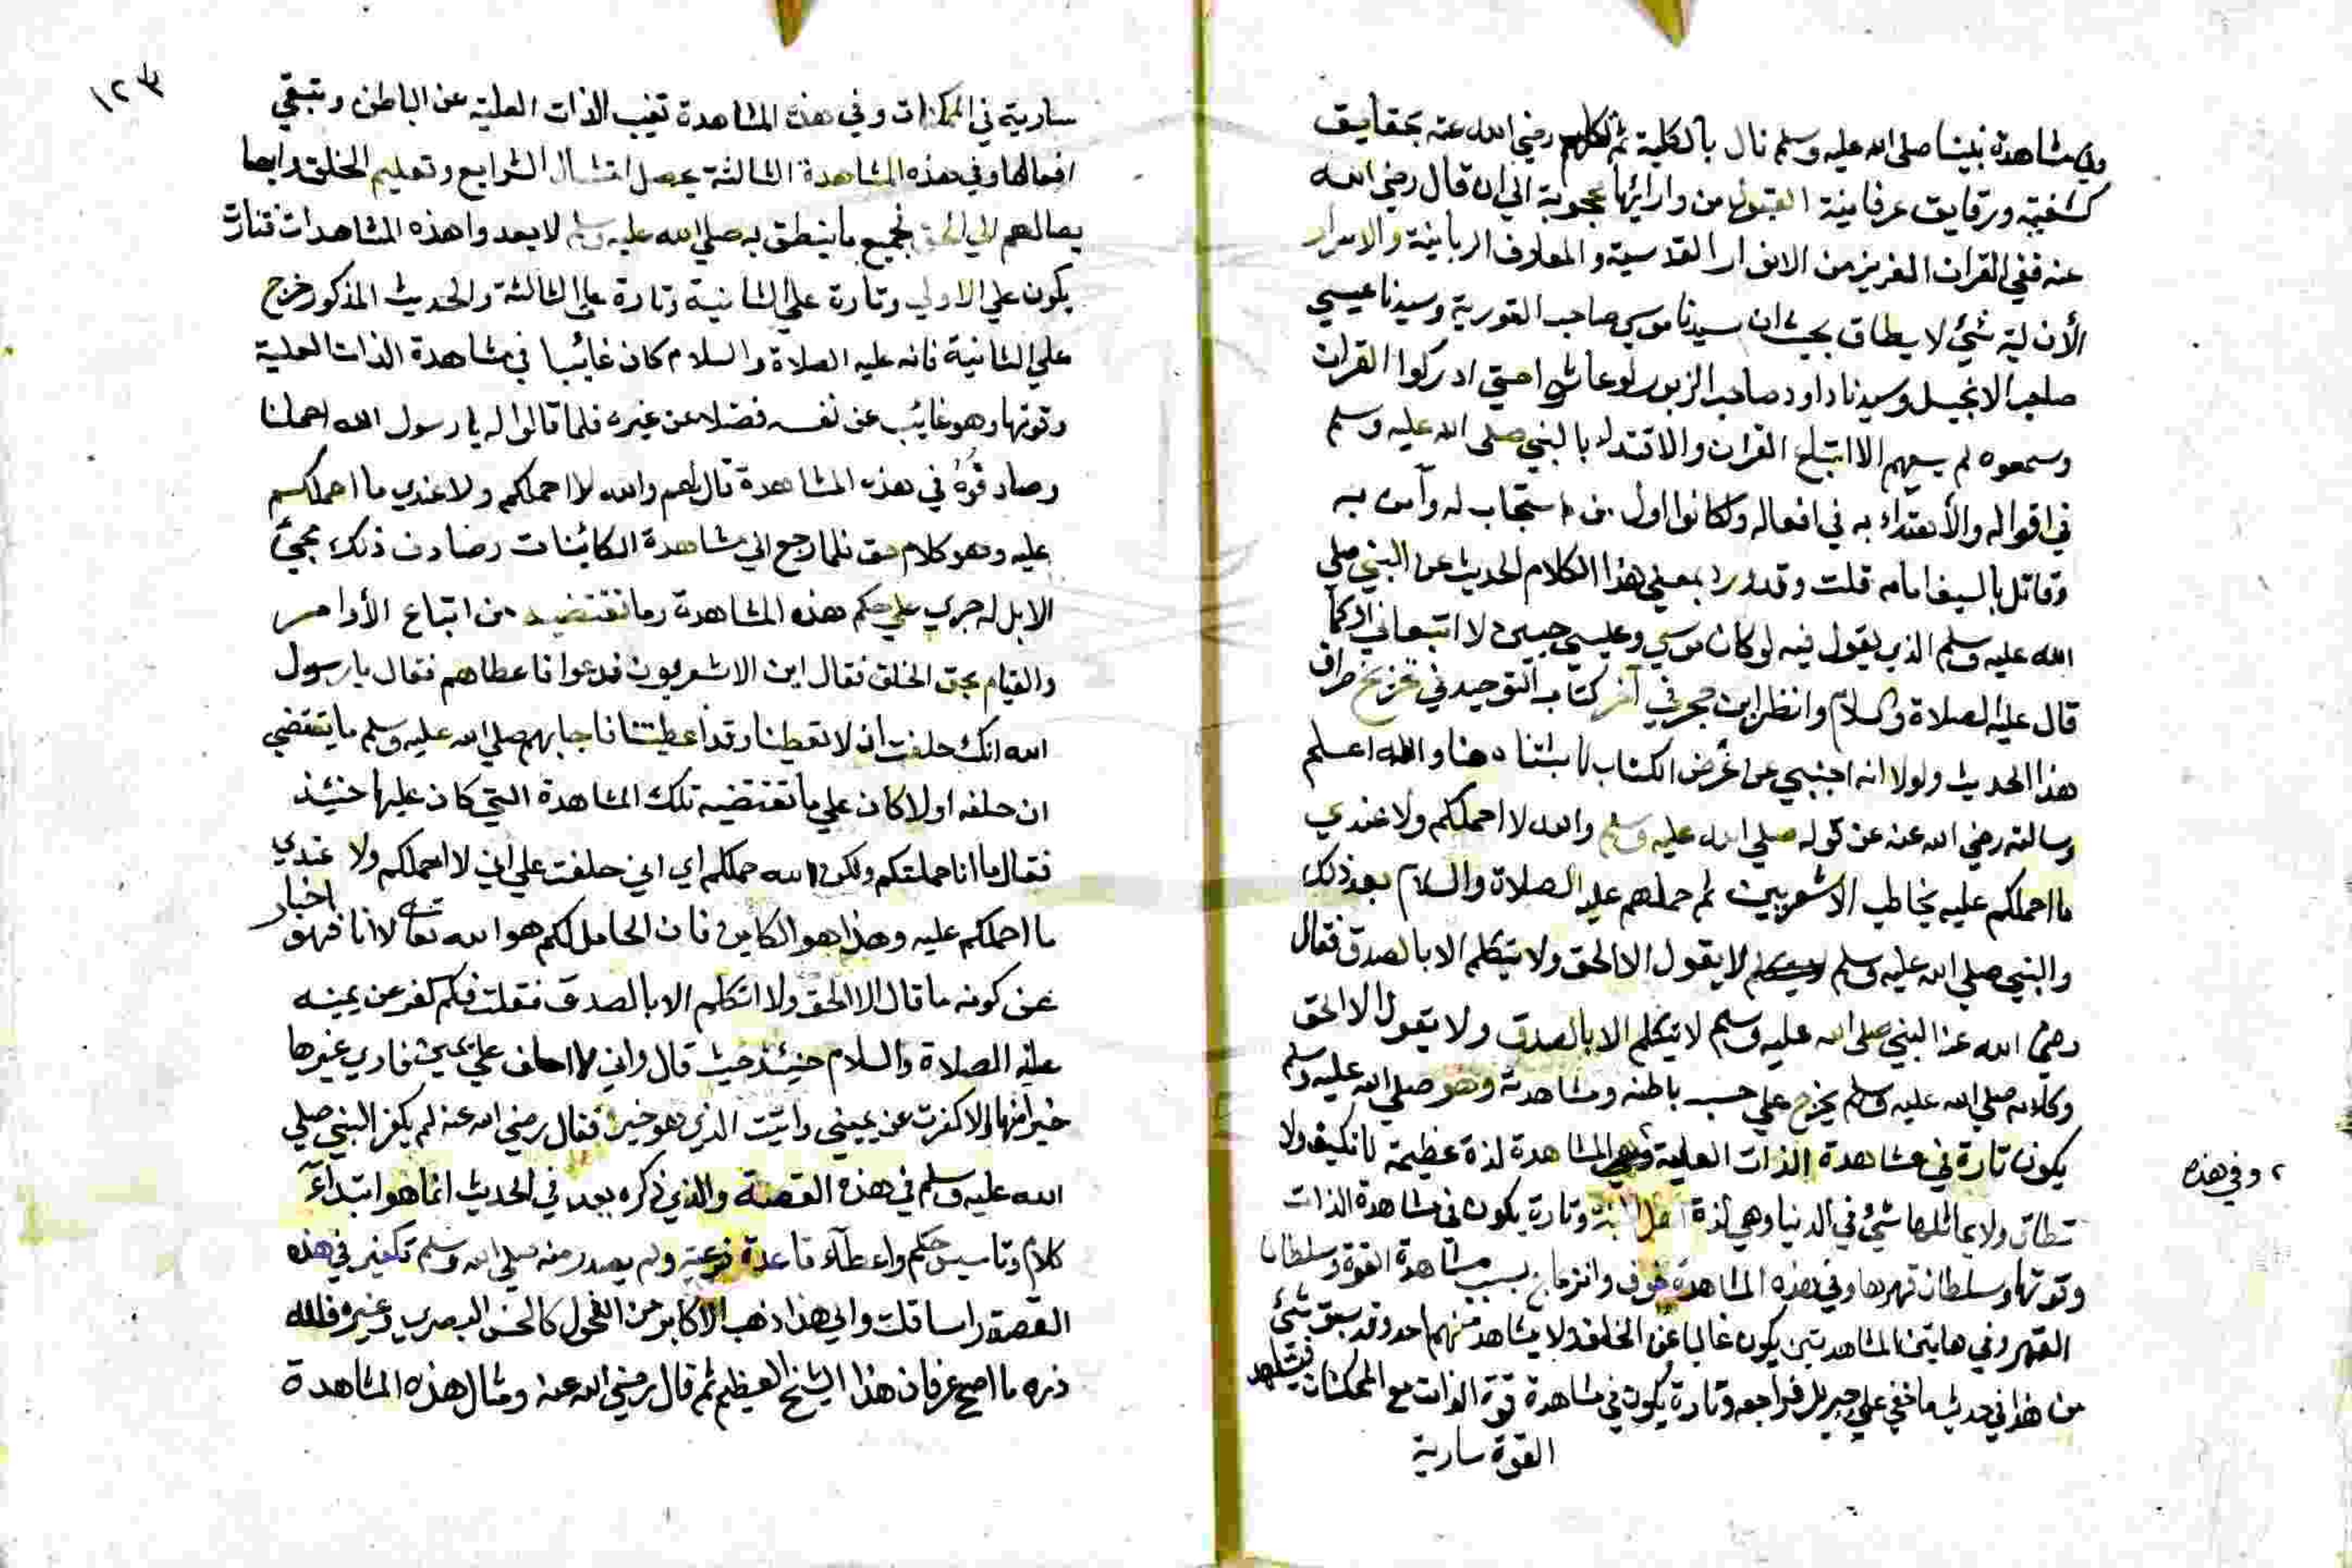 مشاهدة نبينا صلى الله عليه وسلم نال بالكلية ثم تكلم رضي الله عنه بحقايق
كشفية ورقايق عرفانية الى ان قال رضي الله
عنه ففي القران العزيز من الانوار القدسية والمعارف الربانية والاسرار
الأزلية شيئ لا يطاق بحيث ان سيدنا موسي صاحب التورية وسيدنا عيسي
صاحب الانجيل وسيدنا داود صاحب الزبور لو عاشوا حتي ادركوا القران
وسمعوه لم يسعهم الا اتباع القران والاقتداء بالنبي صلى الله عليه وسلم
في اقواله والأهتداء به في افعاله ولكانوا اول من استجاب له وآمن به
وقاتل بالسيف امامه قلت وقد ورد بمعني هذا الكلام الحديث عن النبي صلي
الله عليه وسلم الذي يقول فيه لو كان موسي وعيسي حيين لا اتبعاني او كما
قال عليه الصلاة والسلام وانظر ابن حجر في آخر كتاب التوحيد في
هذا الحديث ولولا انه اجنبي عن غرض الكتاب لاثبتناه هنا والله اعلم
وسالته رضي الله عنه عن قوله صلي الله عليه وسلم والله لا احملكم ولا عندي
ما احملكم عليه يخاطب الاشعريين ثم حملهم عليه الصلاة والسلام بعد ذلك
والنبي صلي الله عليه وسلم لا يقول الا الحق ولا يتكلم الا بالصدق فقال
رضي الله عنه النبي صلى الله عليه وسلم لا يتكلم الا بالصدق ولا يقول الا الحق
وكلامه صلي الله عليه وسلم يخرج علي حسب باطنه ومشاهدته وهو صلي الله عليه وسلم
يكون تارة في مشاهدة الذات العلية المشاهدة لذة عظيمة لا تكيف ولا
، وفي هذه
تطاق ولا يماثلها شيئ في الدنيا وهي لذة اهل الجنة وتارة يكون في مشاهدة الذات
وقوتها وسلطان قهرها وفي هذه المشاهدة خوف وانزعاج بسبب مشاهدة القوة وسلطان
القهر وفي هاتين المشاهدتين يكون غائبا عن الخلق ولا يشاهد منهم احد وقد سبق شيئ
من هذا في حديث ما خفي علي جبريل فراجعه وتارة يكون في مشاهدة قوة الذات مع الممكنات فيشاهد
القوة سارية
١٢٣
سارية في الممكنات وفي هذه المشاهدة تغيب الذات العلية عن الباطن وتبقي
افعالها وفي هذه المشاهدة الثالثة يحصل امتثال الشرايع وتعليم الخلق وايصا
يصالهم الي الحق فجميع ما ينطق به صلي الله عليه وسلم لا يعدوا هذه المشاهدات فتارة
يكون علي الاولي وتارة علي الثانية وتارة علي الثالثة والحديث المذكور خرج
علي الثانية فانه عليه الصلاة والسلام كان غائبا في مشاهدة الذات العلية
وقوتها وهو غايب عن نفسه فضلا عن غيره فلما قالوا له يا رسول الله احملنا
وصادفوه في هذه المشاهدة قال لهم والله لا احملكم ولا عندي ما احملكم
عليه وهو كلام حق فلما رجع الي مشاهدة الكائنات وصادف ذلك مجيئ
الابل له جري علي حكم هذه المشاهدة وما تقتضيه من اتباع الأوامر
والقيام بحق الخلق فقال اين الاشعريون فدعوا فاعطاهم فقال يا رسول
الله انك حلفت ان لا تعطينا وقد اعطيتنا فاجابهم صلي الله عليه وسلم ما يقتضي
ان حلفه اولا كان علي ما تقتضيه تلك المشاهدة التي كان عليها حنيئذ
فقال ما انا حملتكم ولكن الله حملكم اي اني حلفت علي اني لا احملكم ولا عندي
ما احملكم عليه وهذا هو الكاين فان الحامل لكم هو الله تعالي لا انا فهو اخبار
عن كونه ما قال الا الحق ولا اتكلم الا بالصدق فقلت فكم كفر عن يمينه
عليه الصلاة والسلام حنيئذ حيث قال واني لا احلف علي يمين فاري غيرها
خيرا منها الا كفرت عن يميني واتيت الذي هو خير فقال رضي الله عنه لم يكفر النبي صلي
الله عليه وسلم في هذه القصة والذي ذكره بعد في الحديث انما هو ابتداء
كلام وتاسيس حكم واعطآء قاعدة شرعية ولم يصدر منه صلي الله وسلم تكفير في هذه
القصة راسا قلت والي هذا ذهب الاكابر من الفحول كالحسن البصري وغيره فلله
دره ما اصح عرفان هذا الشيخ العظيم ثم قال رضي الله عنه ومثال هذه المشاهدة